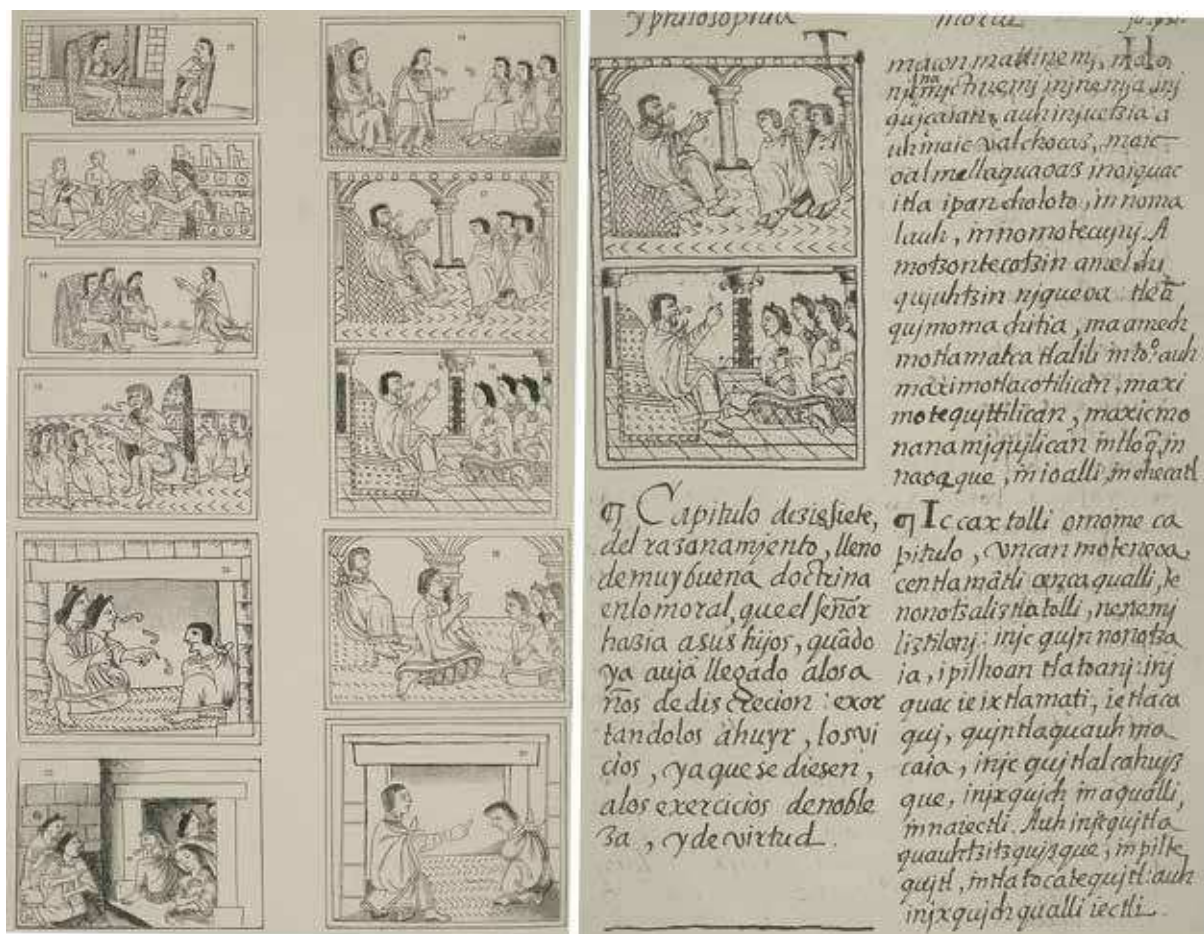 y philosophia moral
macon mattinemj, maço
qujcaiatz, auh injuetzia a
uh in aic valchocas, maic
oal mellaquaoaz inoiquac
itla ipan choloto, in noma
lauh, mnomotecujnj. A
motzontecotzin amelchi
qujuhtzin njqueoa: tleā
qujmomachitia, ma amech
motlamatca tlalili in to.º auh
maximotlacotilican, maxi
motequittilican, maxicmo
nanamjqujlican in tloq̄, in
naoaque, in ioalli, in ehecatl
¶ Capitulo dezisiete,
del razanamjento, lleno
de muy buena doctrina
en lo moral, que el señor
hazia a sus hijos, quādo
ya auja llegado alos a
ños de discrecion: exor
tandolos ahuyr, los vi
cios, ya que se diesen,
alos exercicios de noble
za, y de virtud.
¶ Ic caxtolli omome ca
pitulo, vncan moteneoa
centlamātli cenca qualli, te
nonotzaliztlatolli, nenemj
liztilonj: injc qujn nonotza
ia, ipilhoan tlatoanj: inj
quac ie ixtlamati, ie tlaca
quj, qujntlaquauhma
caia, injc qujtlalcahujz
que, injxqujch in aqualli,
in naiectli. Auh injc qujtla
quauhtzitzqujzque, in pilte
qujtl, in tlatocatequjtl: auh
injxqujch qualli iectli.